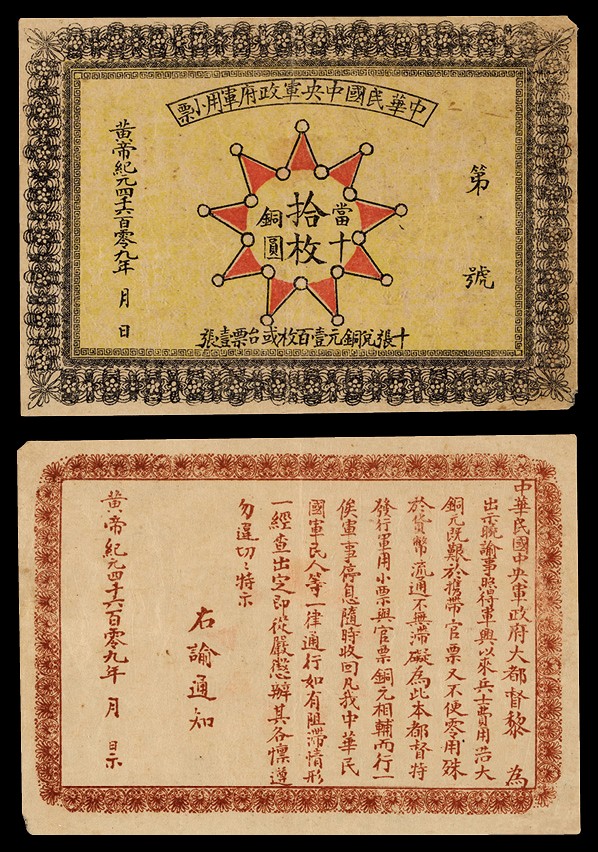 中華民國中央軍政府軍用小票
第 號
當十
拾枚
銅圓
黃帝紀元四千六百零九年 月 日
十張兌銅元壹百枚或台票壹張
中華民國中央軍政府大都督黎 為
出示曉諭事照得軍興以來兵士費用浩大
銅元既艱於攜帶官票又不便零用殊
於貨幣流通不無滯礙為此本都督特
發行軍用小票與官票銅元相輔而行一
俟軍事停息隨時收回凡我中華民
國軍民人等一律通行如有阻滯情形
一經查出定即從嚴懲辦其各懍遵
勿違切々特示
右諭通知
黃帝紀元四千六百零九年 月 日示